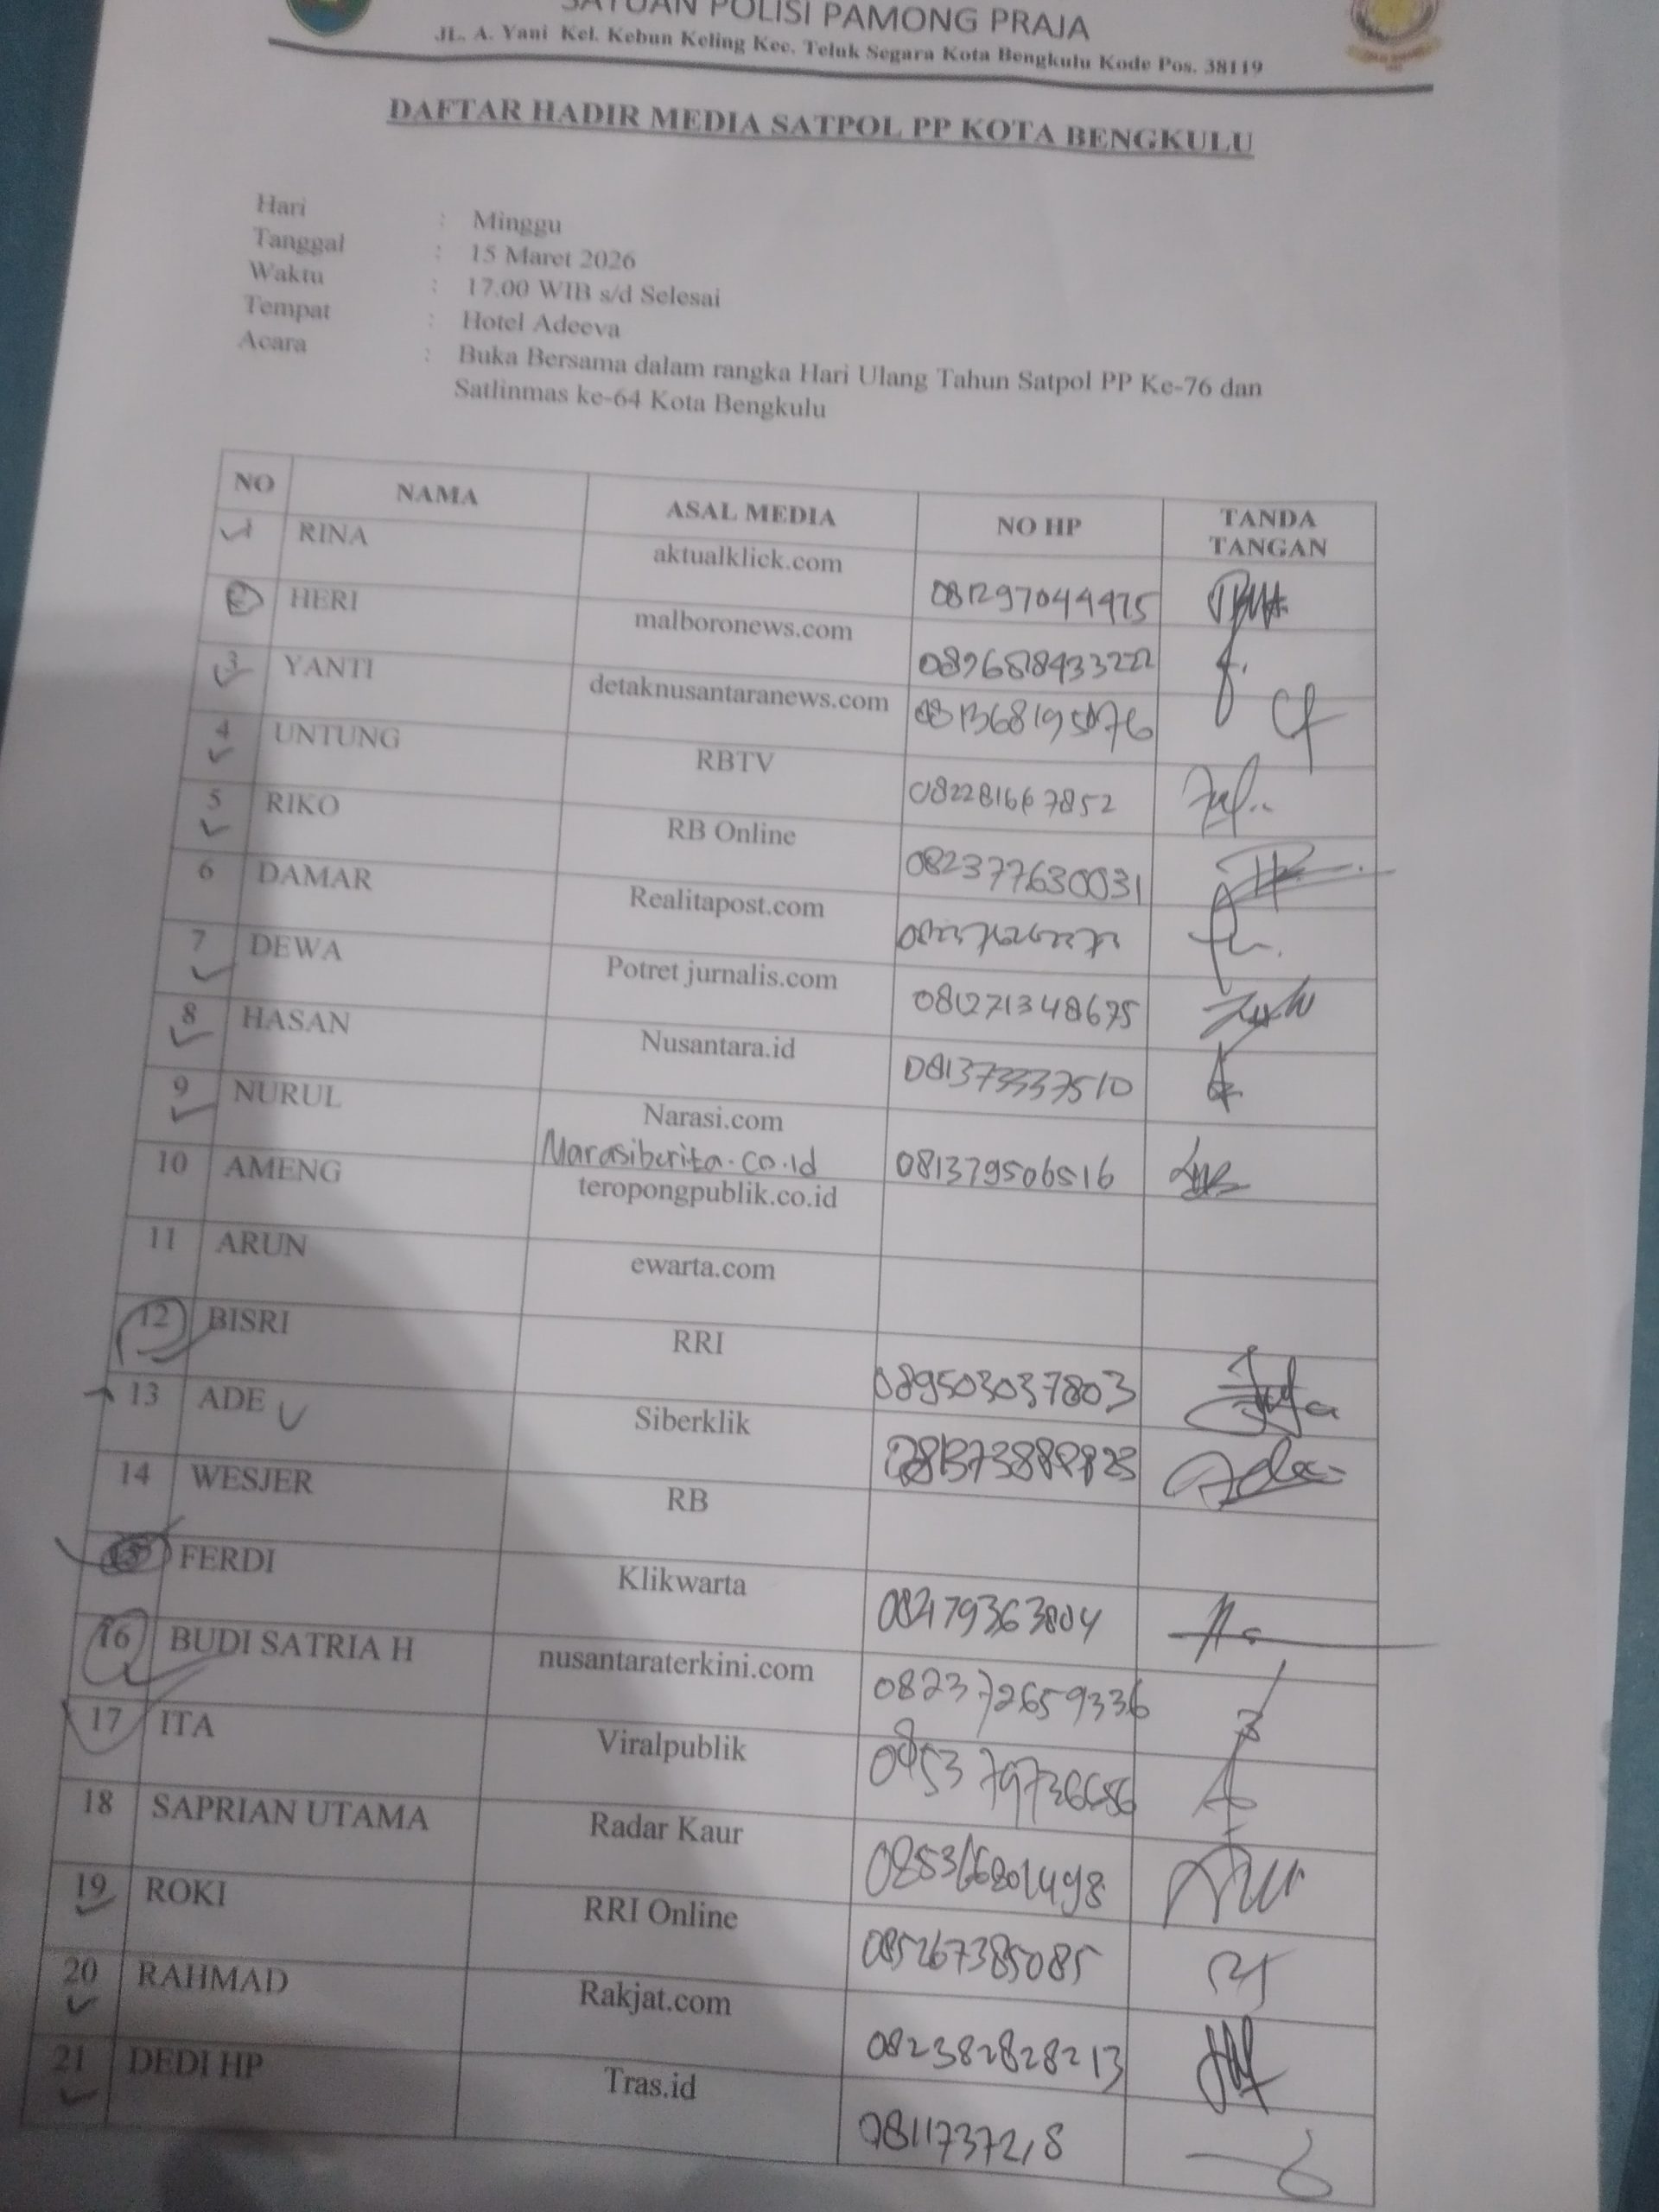 SATUAN POLISI PAMONG PRAJA
JL. A. Yani Kel. Kebun Keling Kec. Teluk Segara Kota Bengkulu Kode Pos. 38119
DAFTAR HADIR MEDIA SATPOL PP KOTA BENGKULU
Hari : Minggu
Tanggal : 15 Maret 2026
Waktu : 17.00 WIB s/d Selesai
Tempat : Hotel Adeeva
Acara : Buka Bersama dalam rangka Hari Ulang Tahun Satpol PP Ke-76 dan
Satlinmas ke-64 Kota Bengkulu
NO NAMA ASAL MEDIA NO HP TANDA
TANGAN
1 RINA aktualklick.com
2 HERI malboronews.com
3 YANTI detaknusantaranews.com
4 UNTUNG RBTV 082281667852
5 RIKO RB Online 082377630031
6 DAMAR Realitapost.com
7 DEWA Potret jurnalis.com 081271348675
8 HASAN Nusantara.id 081373337510
9 NURUL Narasi.com
Narasiberita.co.id 081379506516
10 AMENG teropongpublik.co.id
11 ARUN ewarta.com
12 BISRI RRI 089503037803
13 ADE Siberklik
14 WESJER RB
15 FERDI Klikwarta 082179363804
16 BUDI SATRIA H nusantaraterkini.com 082372659336
17 ITA Viralpublik
18 SAPRIAN UTAMA Radar Kaur
19 ROKI RRI Online 085267385085
20 RAHMAD Rakjat.com 082382828213
21 DEDI HP Tras.id 0811737218